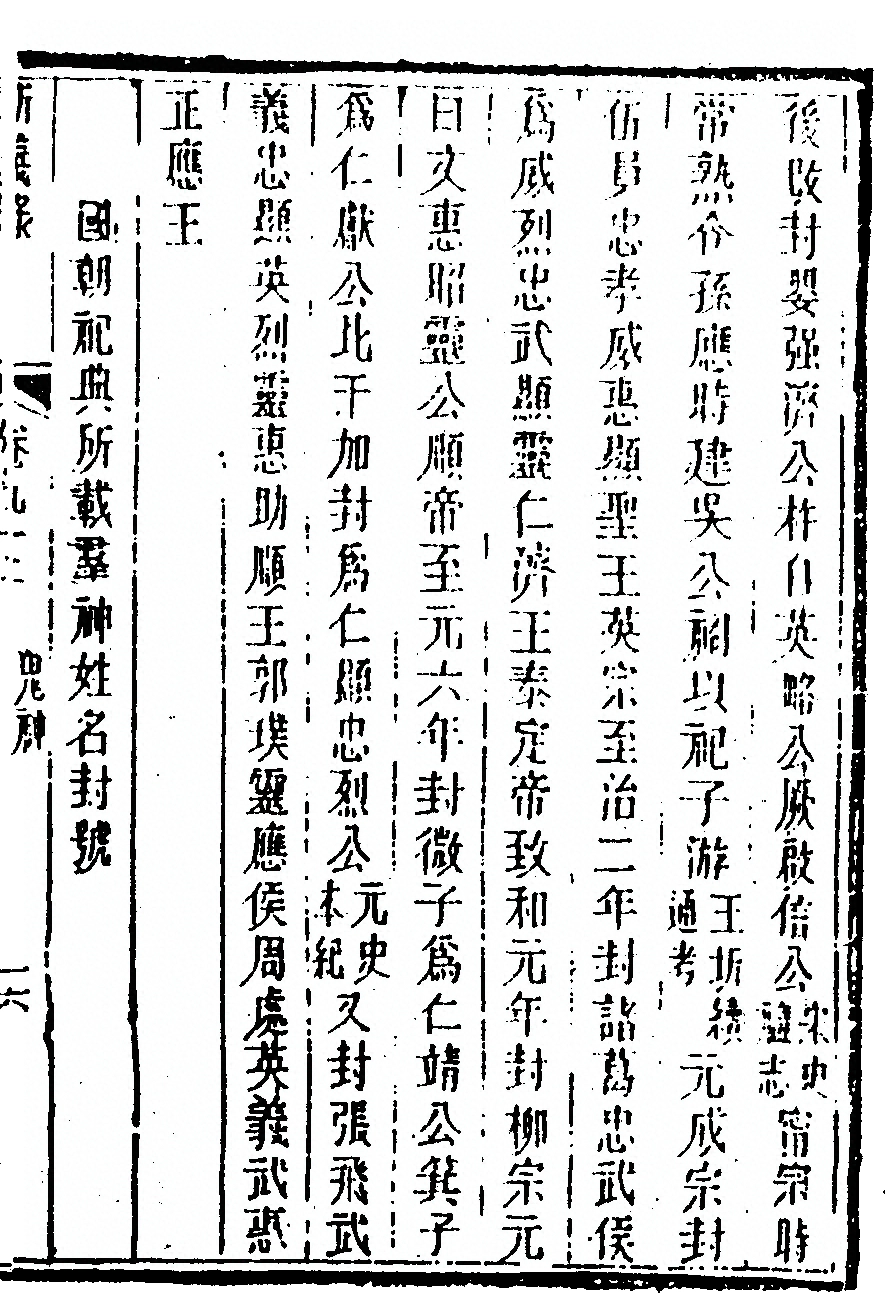 後改封嬰强濟公杵臼英略公厥啟信公宋史禮志甯宗時
常熟令孫應時建吳公祠以祀子游王圻續通考元成宗封
伍員忠孝威惠顯聖王英宗至治二年封諸葛忠武侯
爲威烈忠武顯靈仁濟王泰定帝致和元年封柳宗元
曰文惠昭靈公順帝至元六年封微子爲仁靖公箕子
爲仁獻公比干加封爲仁顯忠烈公元史本紀又封張飛武
義忠顯英烈靈惠助順王郭璞靈應侯周處英義武惠
正應王
國朝祀典所載羣神姓名封號
卷九
鬼神
一六